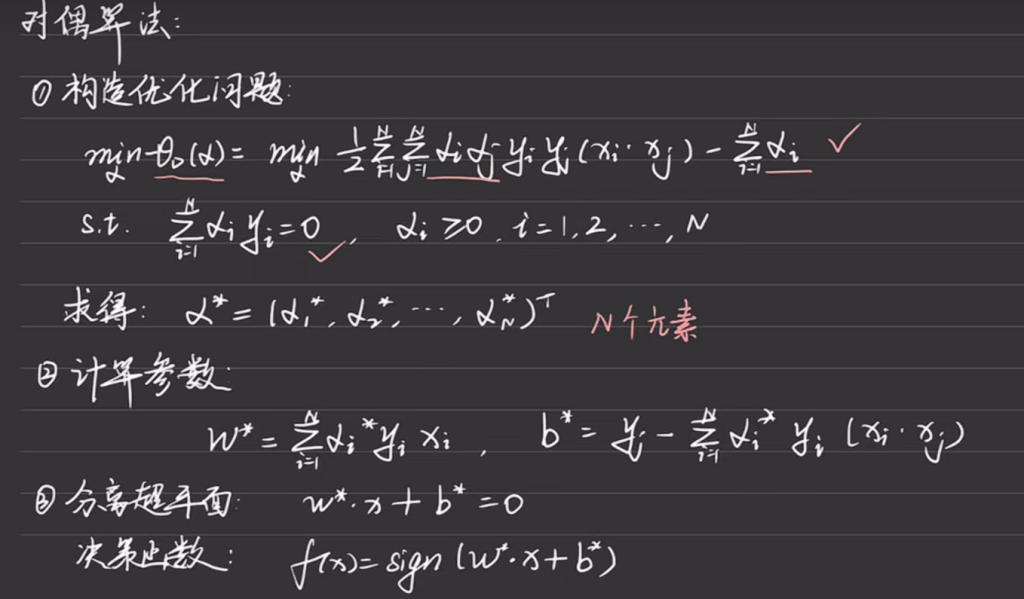 对偶算法:
① 构造优化问题:
min_α θ_D(α) = min_α 1/2 ∑_{i=1}^N ∑_{j=1}^N α_i α_j y_i y_j (x_i · x_j) - ∑_{i=1}^N α_i ✓
s.t. ∑_{i=1}^N α_i y_i = 0 ✓, α_i ≥ 0, i = 1, 2, ···, N
求得: α* = (α_1*, α_2*, ···, α_N*)^T N个元素
② 计算参数:
w* = ∑_{i=1}^N α_i* y_i x_i, b* = y_j - ∑_{i=1}^N α_i* y_i (x_i · x_j)
③ 分离超平面: w* · x + b* = 0
决策函数: f(x) = sign (w* · x + b*)